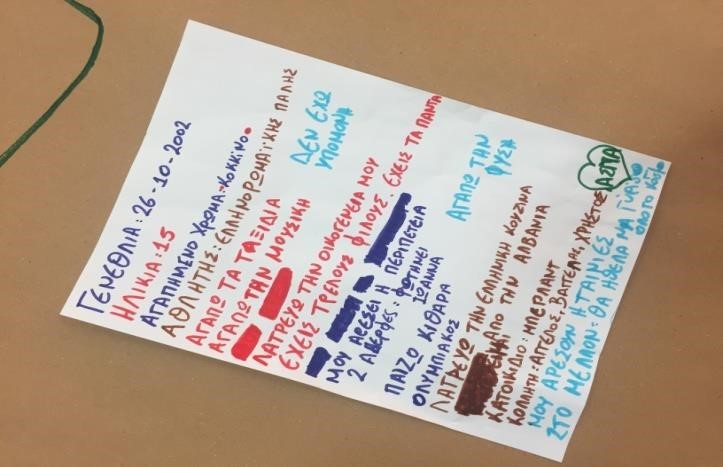 ΓΕΝΕΘΛΙΑ: 26-10-2002
ΗΛΙΚΙΑ: 15
ΑΓΑΠΗΜΕΝΟ ΧΡΩΜΑ: ΚΟΚΚΙΝΟ
ΑΘΛΗΤΗΣ: ΕΛΛΗΝΟΡΩΜΑΪΚΗΣ ΠΑΛΗΣ
ΑΓΑΠΩ ΤΑ ΤΑΞΙΔΙΑ
ΑΓΑΠΩ ΤΗΝ ΜΟΥΣΙΚΗ
ΔΕΝ ΕΧΩ
ΥΠΟΜΟΝΗ
ΛΑΤΡΕΥΩ ΤΗΝ ΟΙΚΟΓΕΝΕΙΑ ΜΟΥ
ΕΧΕΙΣ ΤΡΕΛΟΥΣ ΦΙΛΟΥΣ. ΕΧΕΙΣ ΤΑ ΠΑΝΤΑ
ΜΟΥ ΑΡΕΣΕΙ Η ΠΕΡΙΠΕΤΕΙΑ
2 ΑΔΕΡΦΕΣ: ΦΩΤΗΝΕΙ
ΙΩΑΝΝΑ
ΠΑΙΖΩ ΚΙΘΑΡΑ
ΟΛΥΜΠΙΑΚΟΣ
ΑΓΑΠΩ ΤΗΝ
ΦΥΣΗ
ΛΑΤΡΕΥΩ ΤΗΝ ΕΛΛΗΝΙΚΗ ΚΟΥΖΙΝΑ
ΕΙΜΑΙ ΑΠΟ ΤΗΝ ΑΛΒΑΝΙΑ
ΚΑΤΟΙΚΙΔΙΟ: ΜΠΕΡΛΙΑΝΤ
ΚΟΛΛΗΤΗ: ΑΓΓΕΛΟΣ, ΒΑΓΓΕΛΑΣ, ΧΡΗΣΤΟΣ
ΑΣΠΑ
ΜΟΥ ΑΡΕΣΟΥΝ Η ΤΑΙΝΙΕΣ
ΣΤΟ ΜΕΛΛΟΝ: ΘΑ ΗΘΕΛΑ ΝΑ ΟΛΟΤΟ ΚΟΣΜΟ